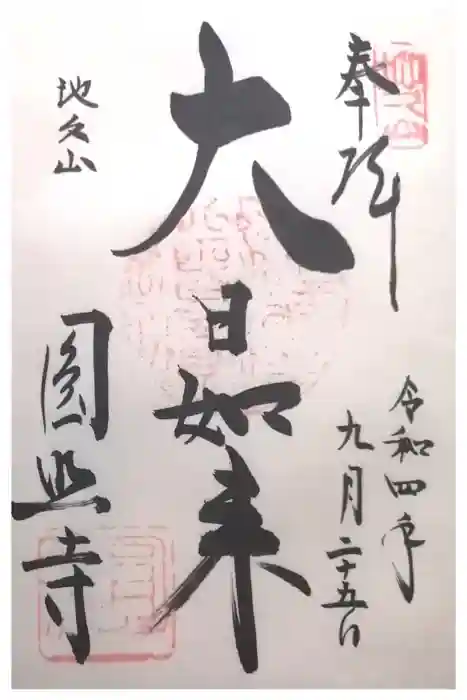 奉拝
令和四年
九月二十五日
大日如来
地久山
圓照寺